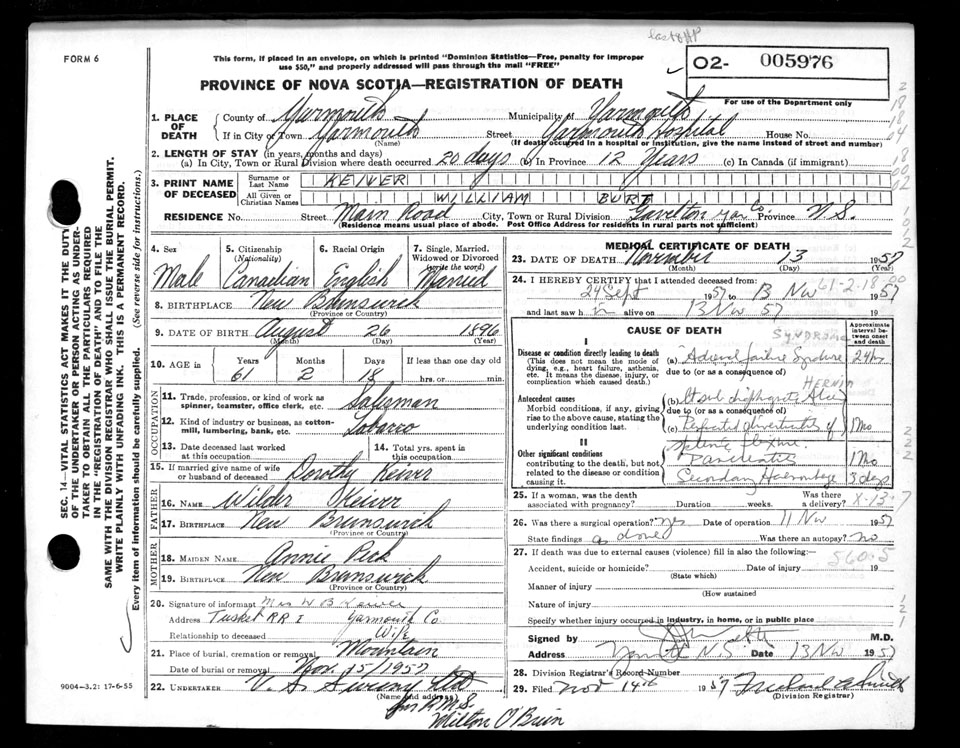 FORM 6
This form, if placed in an envelope, on which is printed "Dominion Statistics—Free, penalty for improper
use $50," and properly addressed will pass through the mail "FREE"
O2- 005976
For use of the Department only
PROVINCE OF NOVA SCOTIA—REGISTRATION OF DEATH
1. PLACE OF DEATH
County of Yarmouth Municipality of Yarmouth
If in City or Town Yarmouth Street Yarmouth Hospital House No.
(Name) (If death occurred in a hospital or institution, give the name instead of street and number)
2. LENGTH OF STAY (in years, months and days)
(a) In City, Town or Rural Division where death occurred 20 days (b) In Province 12 Years (c) In Canada (if immigrant)
3. PRINT NAME OF DECEASED
Surname or Last Name KEIVER
All Given or Christian Names WILLIAM BURT
RESIDENCE No. Street Main Road City, Town or Rural Division Gavelton Yar Co Province N.S.
(Residence means usual place of abode. Post Office Address for residents in rural parts not sufficient)
4. Sex Male
5. Citizenship (Nationality) Canadian
6. Racial Origin English
7. Single, Married, Widowed or Divorced (write the word) Married
8. BIRTHPLACE New Brunswick
(Province or Country)
9. DATE OF BIRTH August 26 1896
(Month) (Day) (Year)
10. AGE in Years 61 Months 2 Days 18 If less than one day old hrs. or min.
OCCUPATION
11. Trade, profession, or kind of work as spinner, teamster, office clerk, etc. Salesman
12. Kind of industry or business, as cotton-mill, lumbering, bank, etc.
13. Date deceased last worked at this occupation
14. Total yrs. spent in this occupation
15. If married give name of wife or husband of deceased Dorothy Keiver
FATHER
16. NAME Wilder Keiver
17. BIRTHPLACE New Brunswick
(Province or Country)
MOTHER
18. MAIDEN NAME Annie
19. BIRTHPLACE New Brunswick
(Province or Country)
20. Signature of informant Mrs W B Keiver
Address Tusket RR 1 Yarmouth Co
Relationship to deceased Wife
21. Place of burial, cremation or removal Mountain
Date of burial or removal Nov. 15/1957
22. UNDERTAKER V. S. Sweeny
(Name and address)
Milton O'Brien
MEDICAL CERTIFICATE OF DEATH
23. DATE OF DEATH November 13 1957
(Month) (Day) (Year)
24. I HEREBY CERTIFY that I attended deceased from:
24 Sept 1957 to 13 Nov 1957
and last saw h im alive on 13 Nov 57 19
CAUSE OF DEATH
Approximate interval between onset and death
SYNDROME
I
Disease or condition directly leading to death
(This does not mean the mode of dying, e.g., heart failure, asthenia, etc. It means the disease, injury, or complication which caused death.)
(a) Adrenal failure Syndrome 24 hrs
due to (or as a consequence of)
Antecedent causes
Morbid conditions, if any, giving rise to the above cause, stating the underlying condition last.
HERNIA
(b)
due to (or as a consequence of)
(c) Perforated diverticulitis of 1 Mo
splenic flexure
II
Other significant conditions
contributing to the death, but not related to the disease or condition causing it.
Pancreatitis 1 Mo
Secondary Haemorrhage 3 days
25. If a woman, was the death associated with pregnancy? Duration weeks. Was there a delivery?
26. Was there a surgical operation? Yes Date of operation 11 Nov 1957
State findings as above Was there an autopsy? No
27. If death was due to external causes (violence) fill in also the following:—
5605
Accident, suicide or homicide? Date of injury 19
(State which)
Manner of injury
(How sustained
Nature of injury
Specify whether injury occurred in industry, in home, or in public place
Signed by M.D.
Address Yarmouth N.S. Date 13 Nov 1957
28. Division Registrar's Record Number
29. Filed Nov 14th 1957
(Division Registrar)
SEC. 14—VITAL STATISTICS ACT MAKES IT THE DUTY
OF THE UNDERTAKER OR PERSON ACTING AS UNDER-
TAKER TO OBTAIN ALL THE PARTICULARS REQUIRED
IN THE "REGISTRATION OF DEATH" AND TO FILE THE
SAME WITH THE DIVISION REGISTRAR WHO SHALL ISSUE THE BURIAL PERMIT.
WRITE PLAINLY WITH UNFADING INK. THIS IS A PERMANENT RECORD.
Every item of information should be carefully supplied. (See reverse side for instructions.)
9004-3.2: 17-6-55